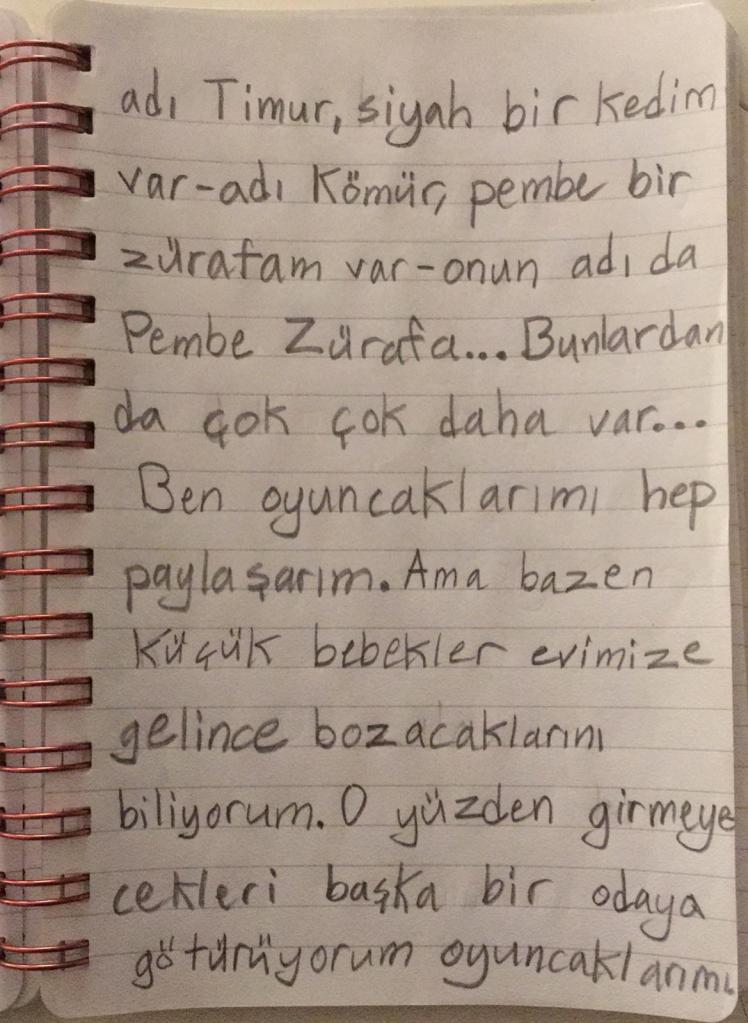 adı Timur, siyah bir kedim
var-adı Kömür, pembe bir
zürafam var-onun adı da
Pembe Zürafa... Bunlardan
da çok çok daha var...
Ben oyuncaklarımı hep
paylaşarım. Ama bazen
küçük bebekler evimize
gelince bozacaklarını
biliyorum. O yüzden girmeye
cekleri başka bir odaya
götürüyorum oyuncaklarımı